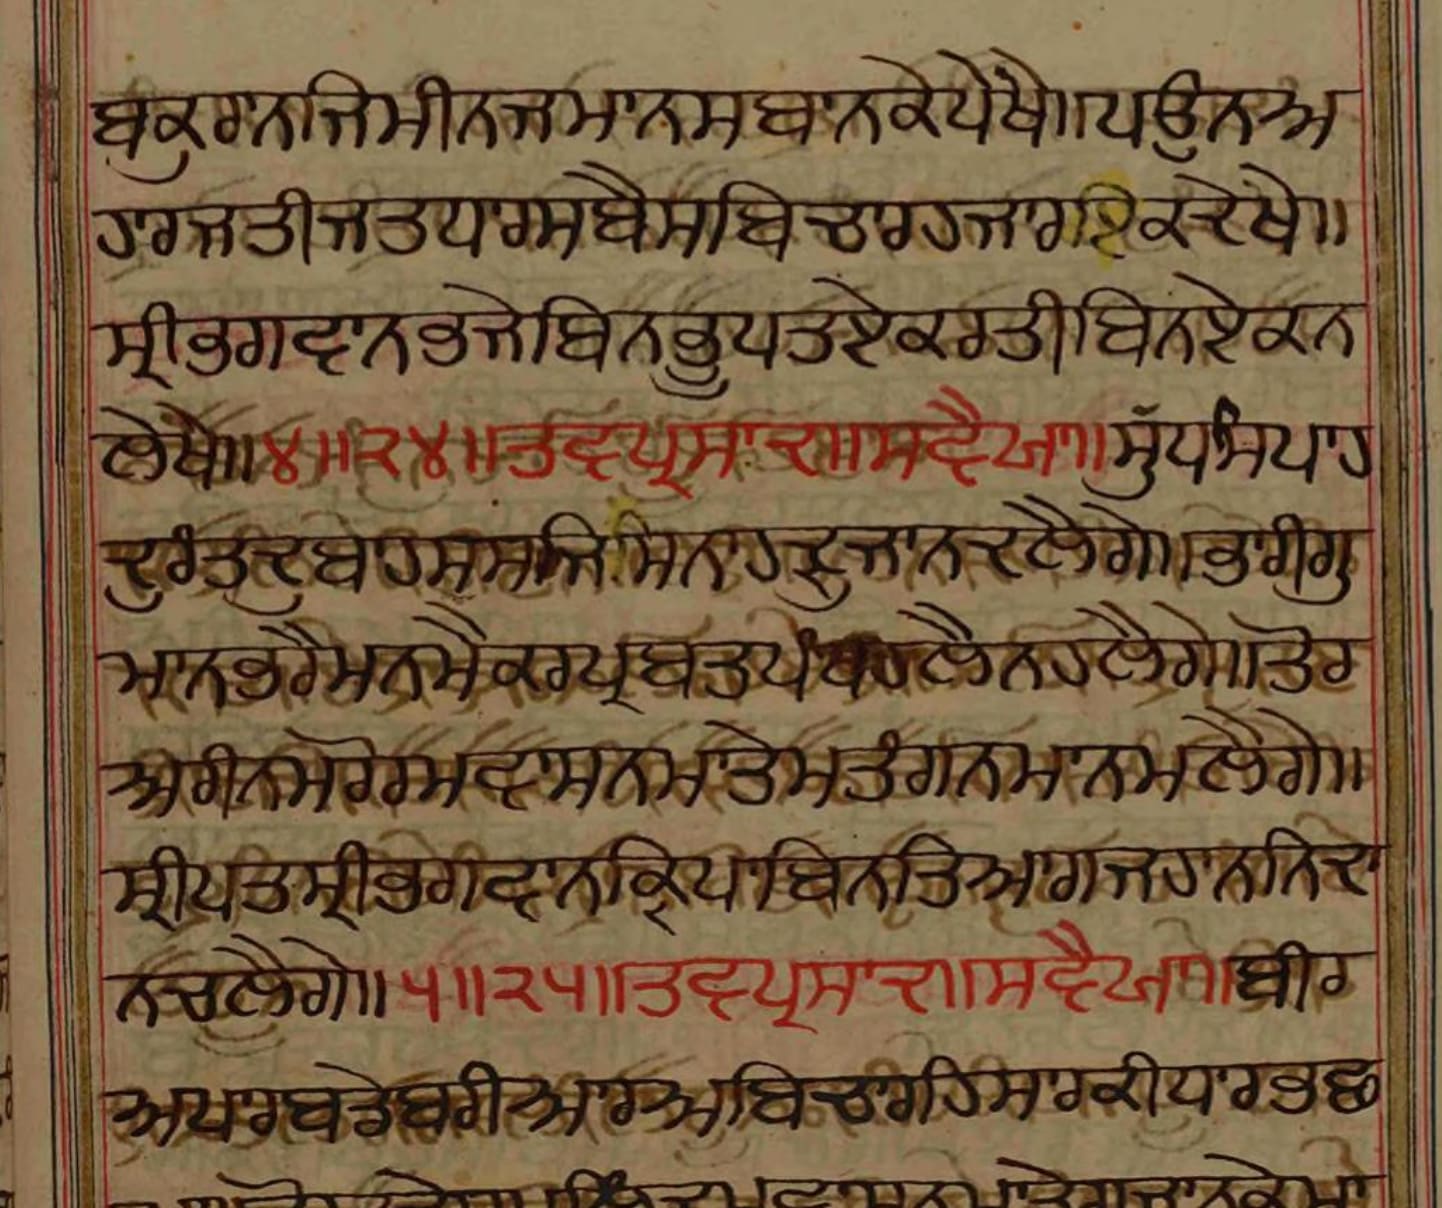 ਬਕੁਰਾਨ ਜਿਮੀਨ ਜਮਾਨ ਸਬਾਨ ਕੇ ਪੇਖੈ॥ ਪਉਨ ਅ
ਹਾਰ ਜਤੀ ਜਤ ਧਾਰ ਸਬੈ ਸ ਬਿਚਾਰ ਹਜਾਰਿਕ ਦੇਖੈ॥
ਸ੍ਰੀ ਭਗਵਾਨ ਭਜੇ ਬਿਨ ਭੂਪਤ ਏਕ ਰਤੀ ਬਿਨ ਏਕ ਨ
ਲੇਖੈ॥੪॥੨੪॥ ਤ੍ਵਪ੍ਰਸਾਦ॥ ਸਵੈਯਾ॥ ਸੁੱਧ ਸਿਪਾਹ
ਦੁਰੰਤ ਦੁਬਾਹ ਸੁ ਸਾਜਿ ਸਨਾਹ ਦੁਜਾਨ ਦਲੈਗੇ॥ ਭਾਰੀ ਗੁ
ਮਾਨ ਭਰੇ ਮਨ ਮੈ ਕਰ ਪ੍ਰਬਤ ਪੰਖ ਹਲੈ ਨ ਹਲੈਗੇ॥ ਤੋਰ
ਅਰੀਨ ਮਰੋਰ ਮਵਾਸਨ ਮਾਤੇ ਮਤੰਗਨ ਮਾਨ ਮਲੈਗੇ॥
ਸ੍ਰੀਪਤ ਸ੍ਰੀ ਭਗਵਾਨ ਕ੍ਰਿਪਾ ਬਿਨ ਤਿਆਗ ਜਹਾਨ ਨਿਦਾ
ਨ ਚਲੈਗੇ॥੫॥੨੫॥ ਤ੍ਵਪ੍ਰਸਾਦ॥ ਸਵੈਯਾ॥ ਬੀਰ
ਅਪਾਰ ਬਡੇ ਬਰੀਆਰ ਅਬਿਚਾਰਹਿ ਸਾਰ ਕੀ ਧਾਰ ਭਛ